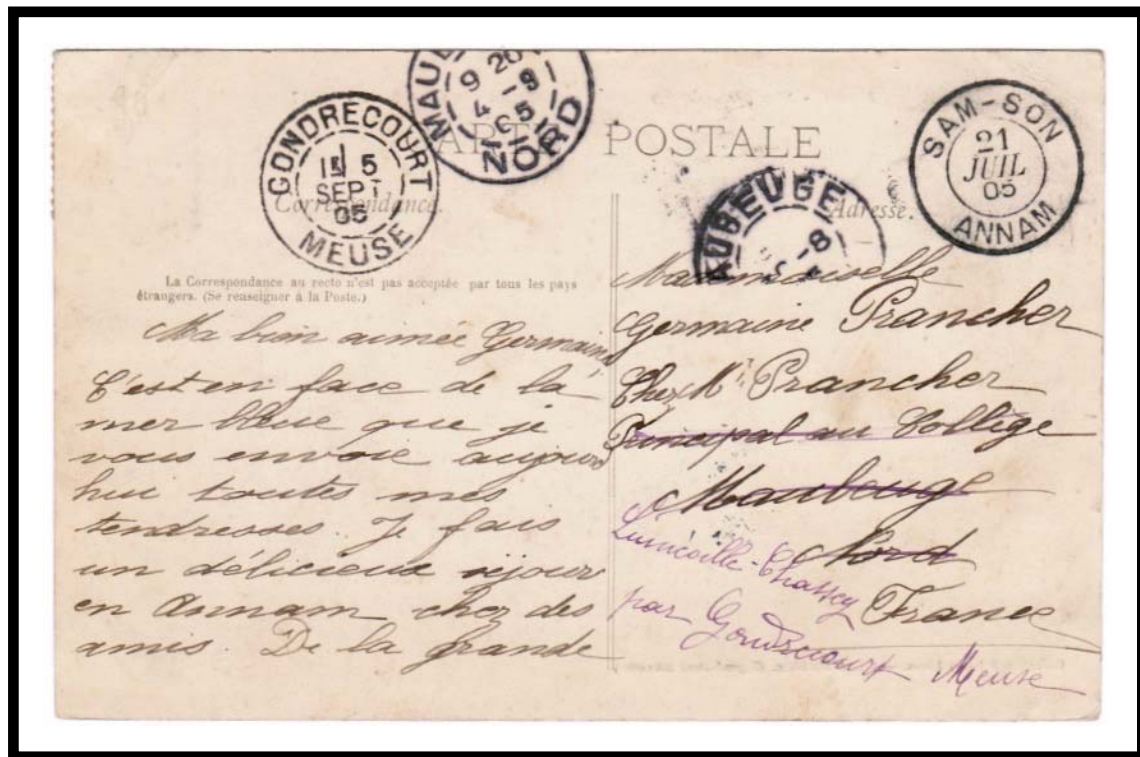 MAU
9 20
4 -9
05
NORD
GONDRECOURT
5
SEPT
05
MEUSE
SAM-SON
21
JUIL
05
ANNAM
CARTE POSTALE
AUBEUGE
Correspondance.
Adresse.
La Correspondance au recto n'est pas acceptée par tous les pays
étrangers. (Se renseigner à la Poste.)
Ma bien aimée Germaine,
C'est en face de la
mer bleue que je
vous envoie aujourd
hui toutes mes
tendresses. Je fais
un délicieux séjour
en Annam chez des
amis. De la grande
Mademoiselle
Germaine Prancher
Chez Mr Prancher
Principal au Collège
Maubeuge
Nord
France
Luméville-Chassey
par Gondrecourt
Meuse